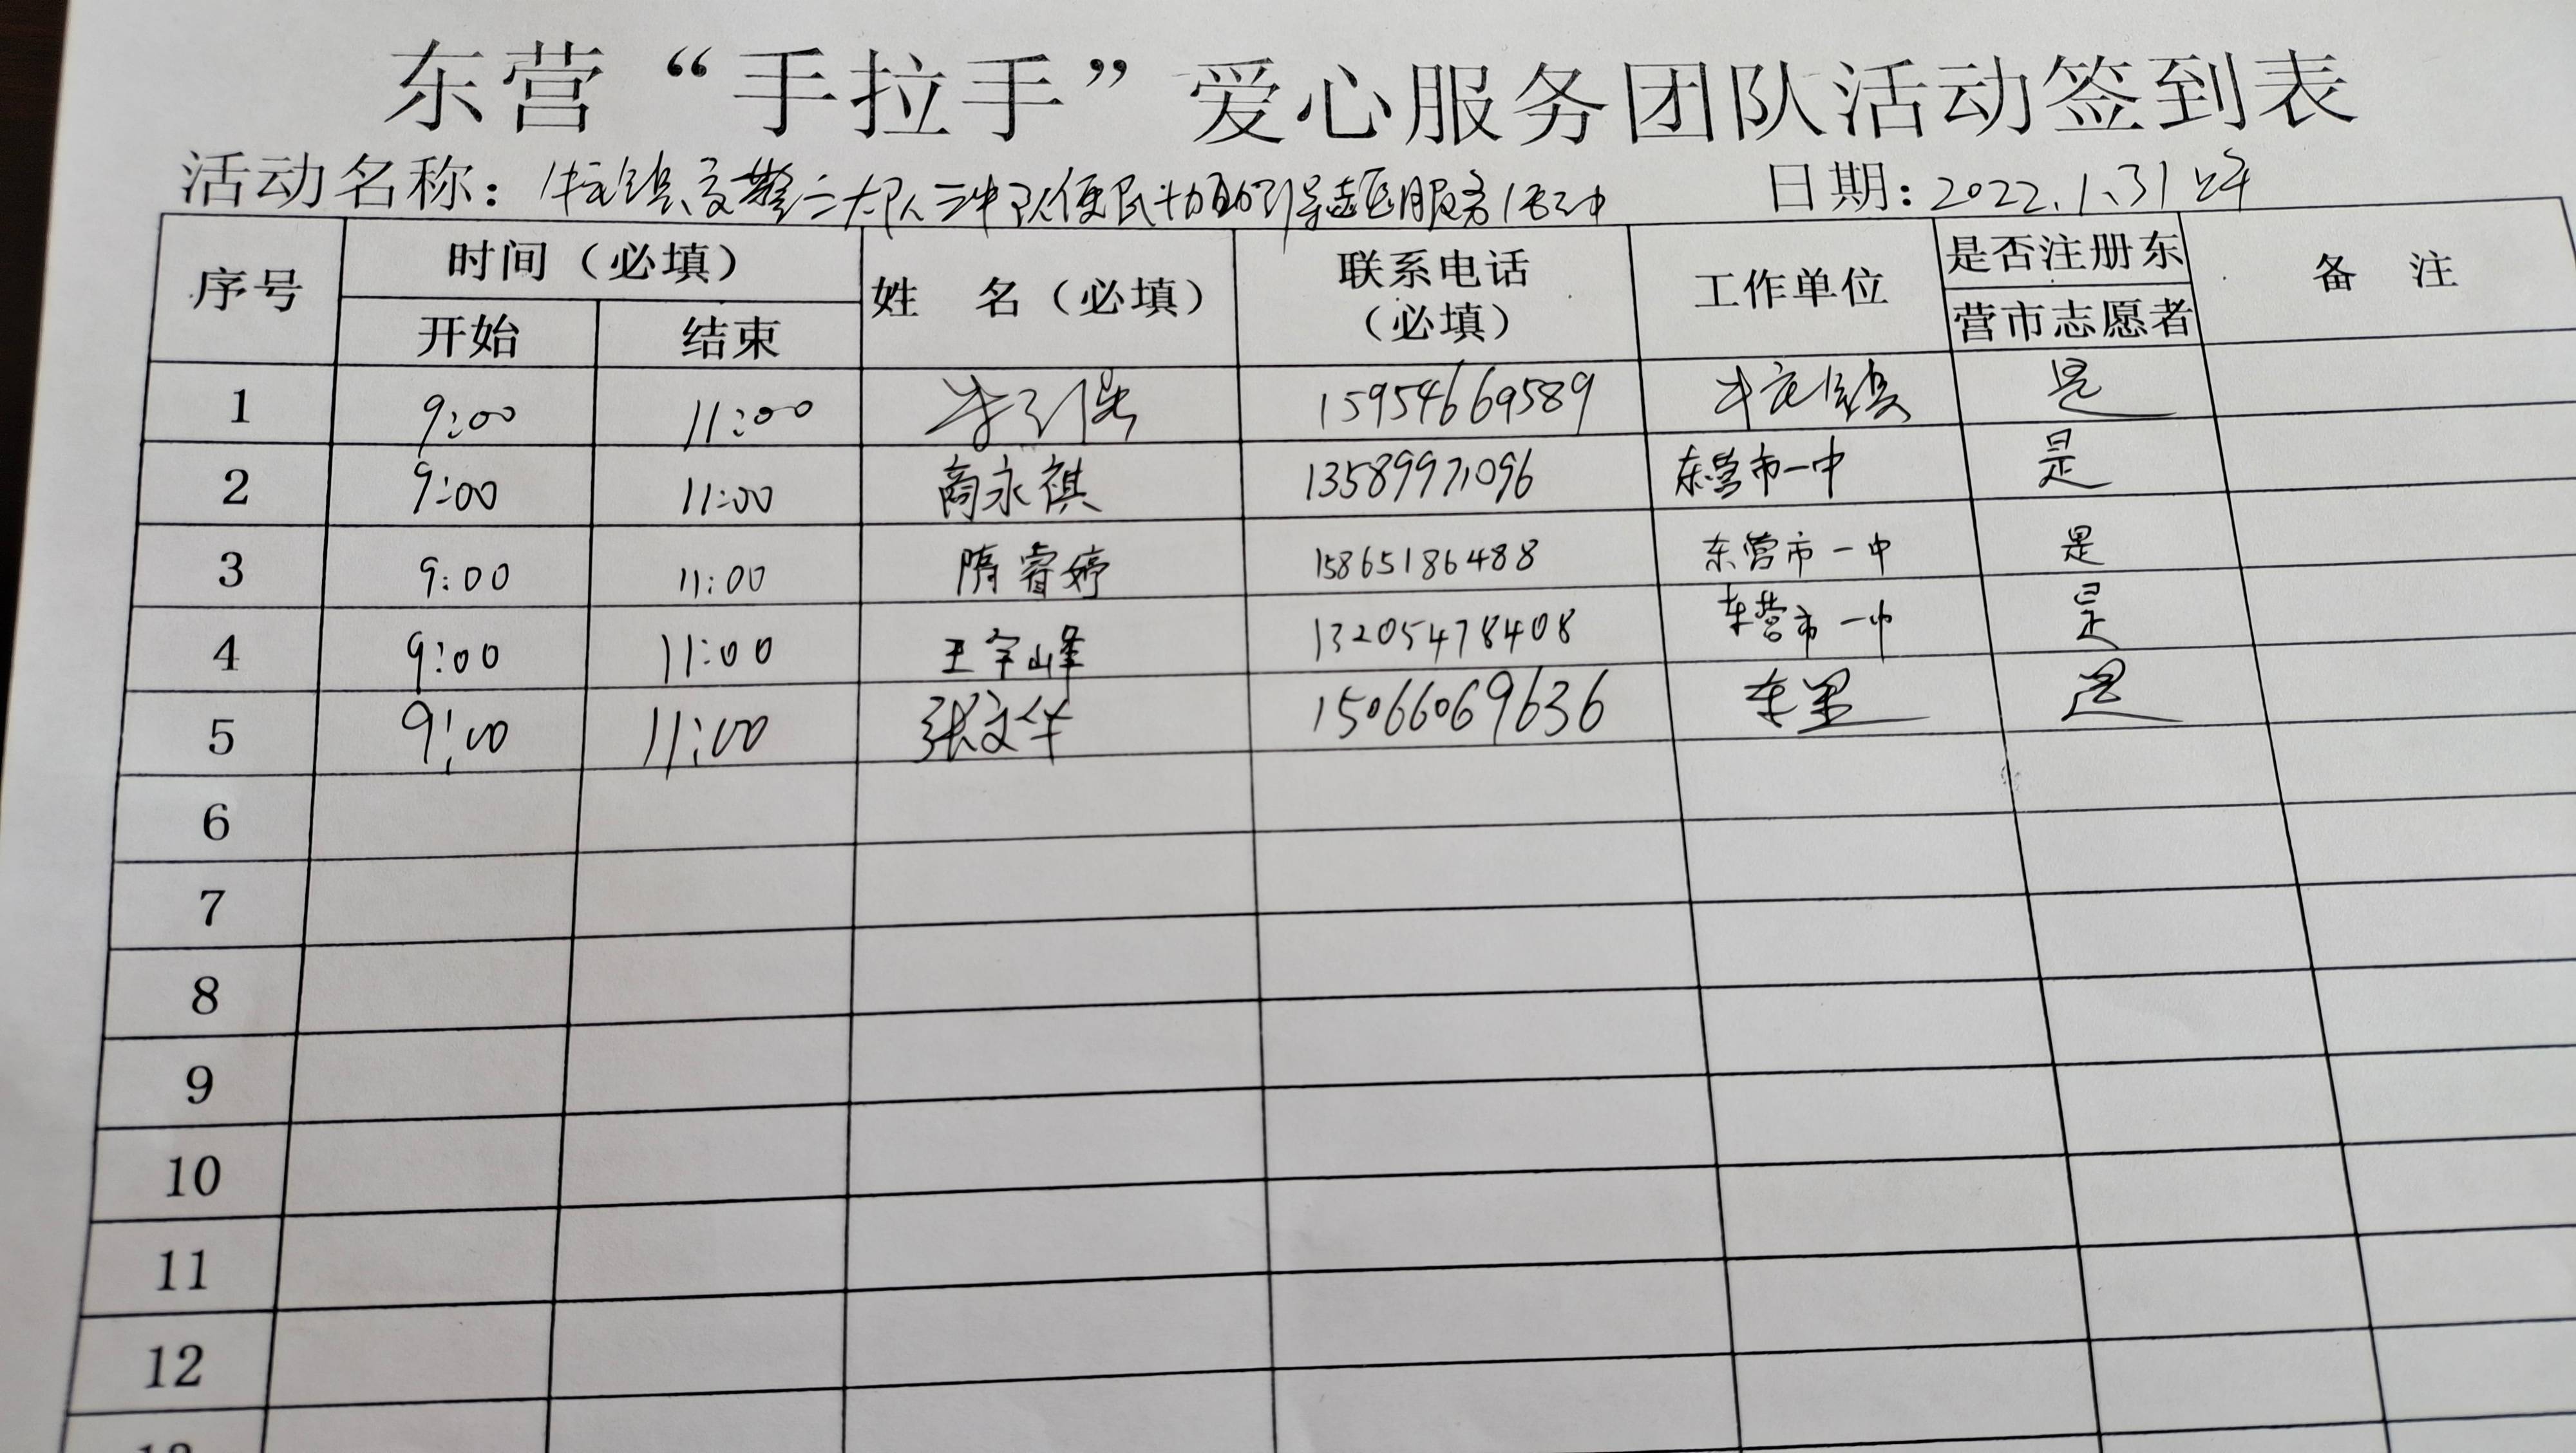 东营“手拉手”爱心服务团队活动签到表
活动名称：交警二大队三中队便民协助引导志愿服务活动 日期：2022.1.31
序号 时间（必填） 姓 名（必填） 联系电话（必填） 工作单位 是否注册东营市志愿者 备 注
开始 结束
1 9:00 11:00 15954669589 是
2 9:00 11:00 商永祺 13589971096 东营市一中 是
3 9:00 11:00 隋睿婷 15865186488 东营市一中 是
4 9:00 11:00 王宇峰 13205478408 东营市一中 是
5 9:00 11:00 张文华 15066069636 是
6
7
8
9
10
11
12